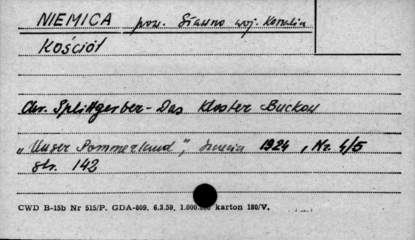 NIEMICA pow. Sławno woj. Koszalin
KOŚCIÓŁ
Chr. Splittgerber - Das Kloster Buckow
"Unser Pommerland", 1924, Nr. 4/5
str. 142
CWD B-15b Nr 515/P. GDA-809. 6.3.59. 1.000.000 karton 180/V.